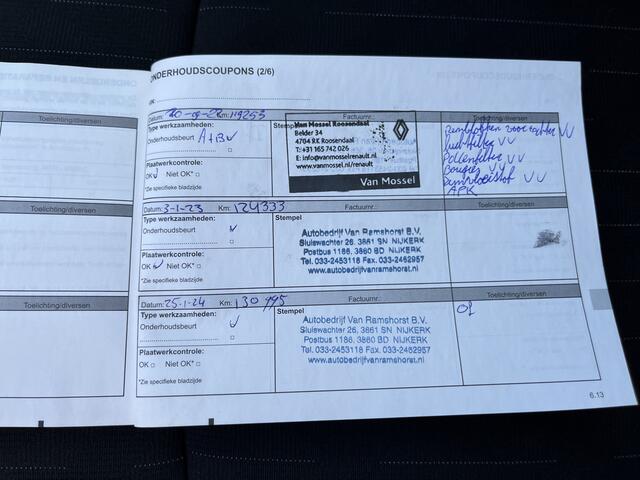 ONDERHOUDSCOUPONS (2/6)
OK:
Toelichting/diversen
Datum: Km: 119253 Factuurnr.: Toelichting/diversen
Type werkzaamheden:
Onderhoudsbeurt A+B V
Plaatwerkcontrole:
OK V Niet OK* □
*Zie specifieke bladzijde
Stempel
Van Mossel Roosendaal
Belder 34
4704 RK Roosendaal
T:+31 165 742 026
E: info@vanmosselrenault.nl
www.vanmosselrenault.nl/renault
Van Mossel
remblokken voor achter VV
luchtfilter VV
Pollenfilter VV
Bougies VV
remvloeistof VV
APK
Toelichting/diversen
Datum: 3-1-23 Km: 124333 Factuurnr.: Toelichting/diversen
Type werkzaamheden:
Onderhoudsbeurt V
Plaatwerkcontrole:
OK V Niet OK* □
*Zie specifieke bladzijde
Stempel
Autobedrijf Van Ramshorst B.V.
Sluiswachter 26, 3861 SN NIJKERK
Postbus 1186, 3860 BD NIJKERK
Tel. 033-2453118 Fax. 033-2462957
www.autobedrijfvanramshorst.nl
Toelichting/diversen
Datum: 25-1-24 Km: 130995 Factuurnr.: Toelichting/diversen
Type werkzaamheden:
Onderhoudsbeurt V
Plaatwerkcontrole:
OK □ Niet OK* □
*Zie specifieke bladzijde
Stempel
Autobedrijf Van Ramshorst B.V.
Sluiswachter 26, 3861 SN NIJKERK
Postbus 1186, 3860 BD NIJKERK
Tel. 033-2453118 Fax. 033-2462957
www.autobedrijfvanramshorst.nl
6.13